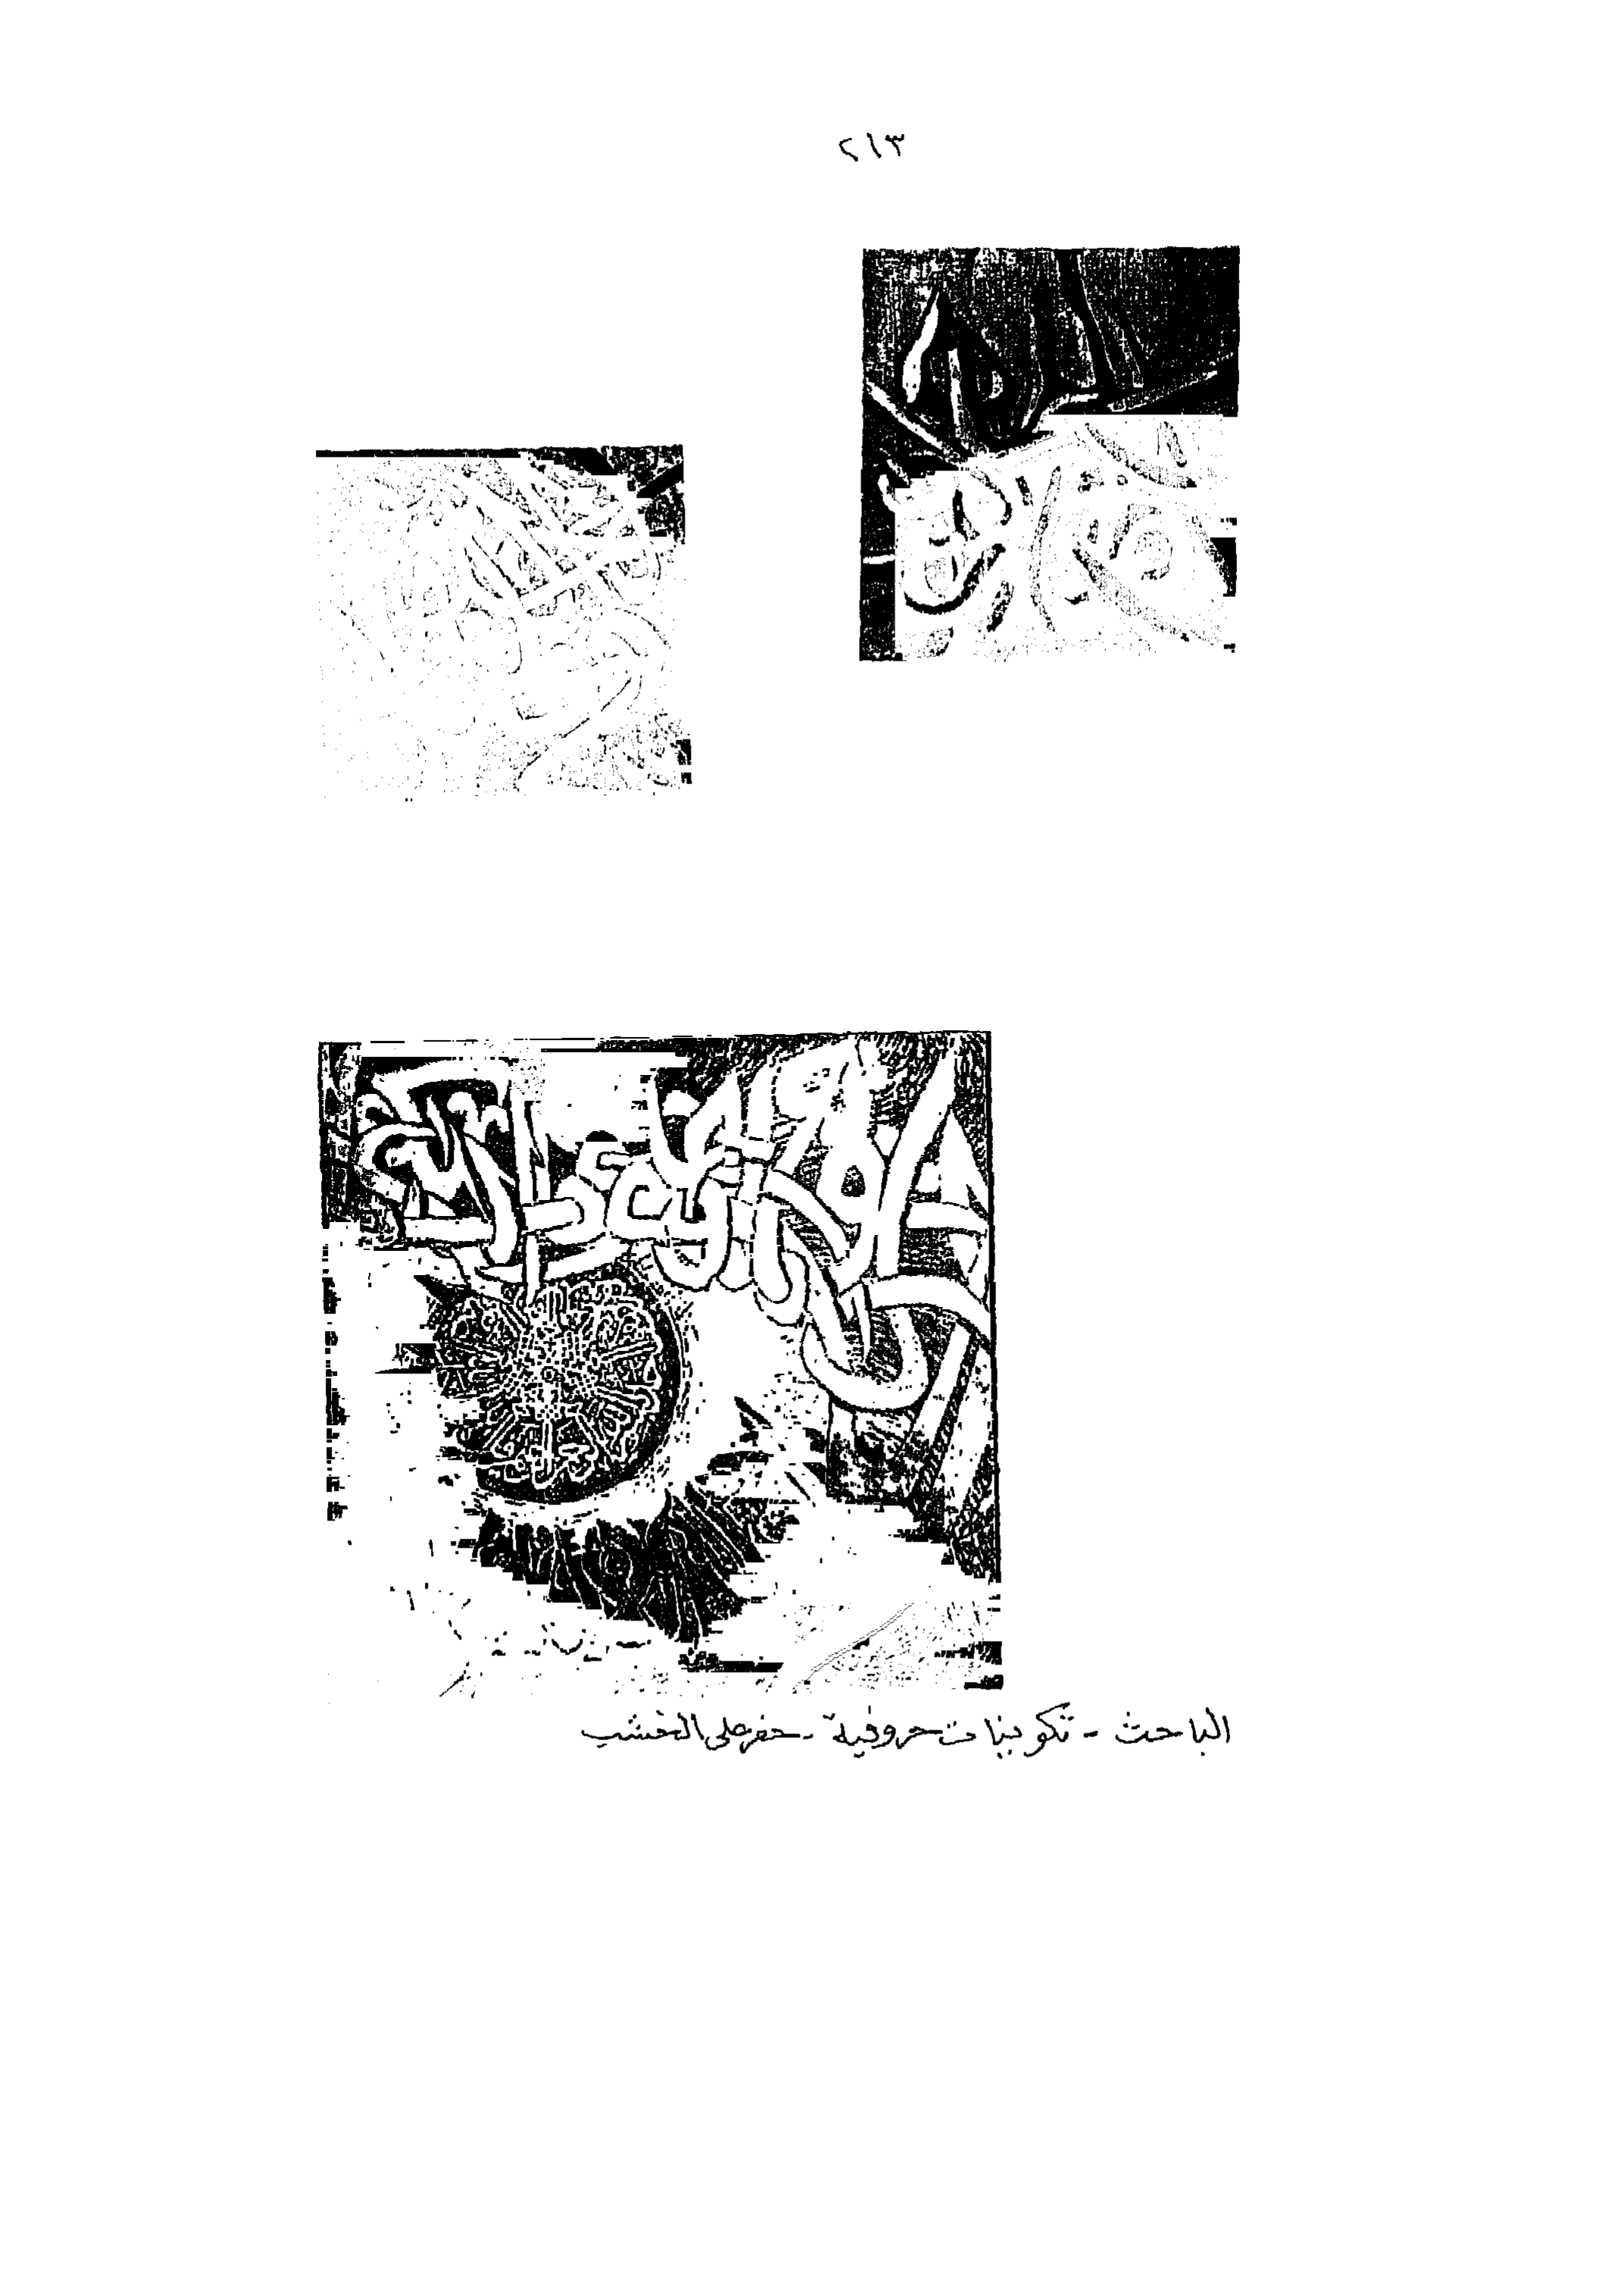 ٢١٣
الباحث - تكوينات حروفية - حفر على الخشب